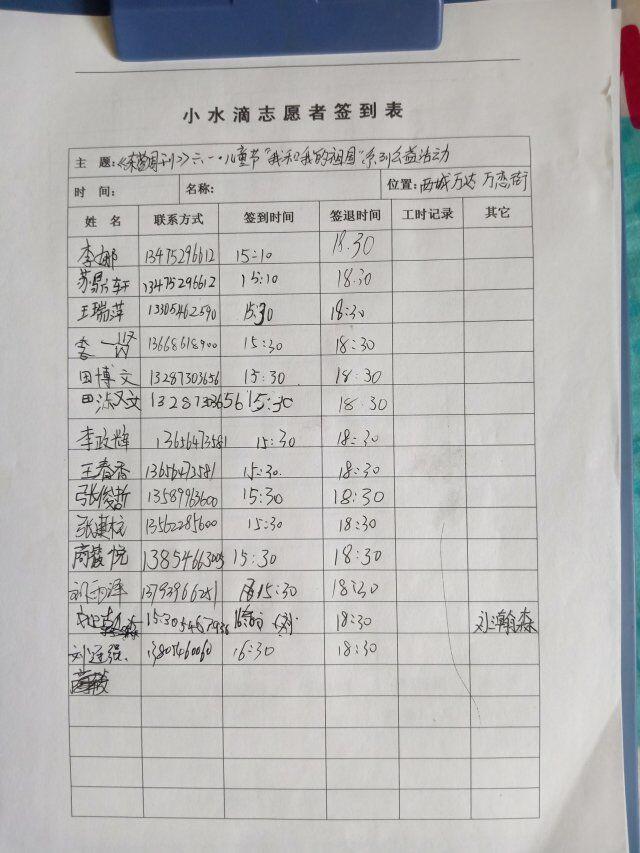 小水滴志愿者签到表
主 题:《东营周刊》六·一儿童节"我和我的祖国"系列公益活动
时 间: 名称: 位置: 西城万达 万恋街
姓 名 联系方式 签到时间 签退时间 工时记录 其它
李娜 13475296612 15:10 18.30
苏晨轩 13475296612 15:10 18.30
王瑞萍 13305462590 15:30 18:30
李 13668618900 15:30 18:30
田博文 13287303656 15:30 18:30
田淑文 13287303656 15:30 18:30
李政辉 13656473581 15:30 18:30
王春香 13656473581 15:30 18:30
张俊哲 13589963600 15:30 18:30
张建 13562285600 15:30 18:30
商 悦 13854663005 15:30 18:30
邓雨泽 13793966251 15:30 18:30
15:30 18:30 刘瀚森
刘廷强 13805460060 16:30 18:30